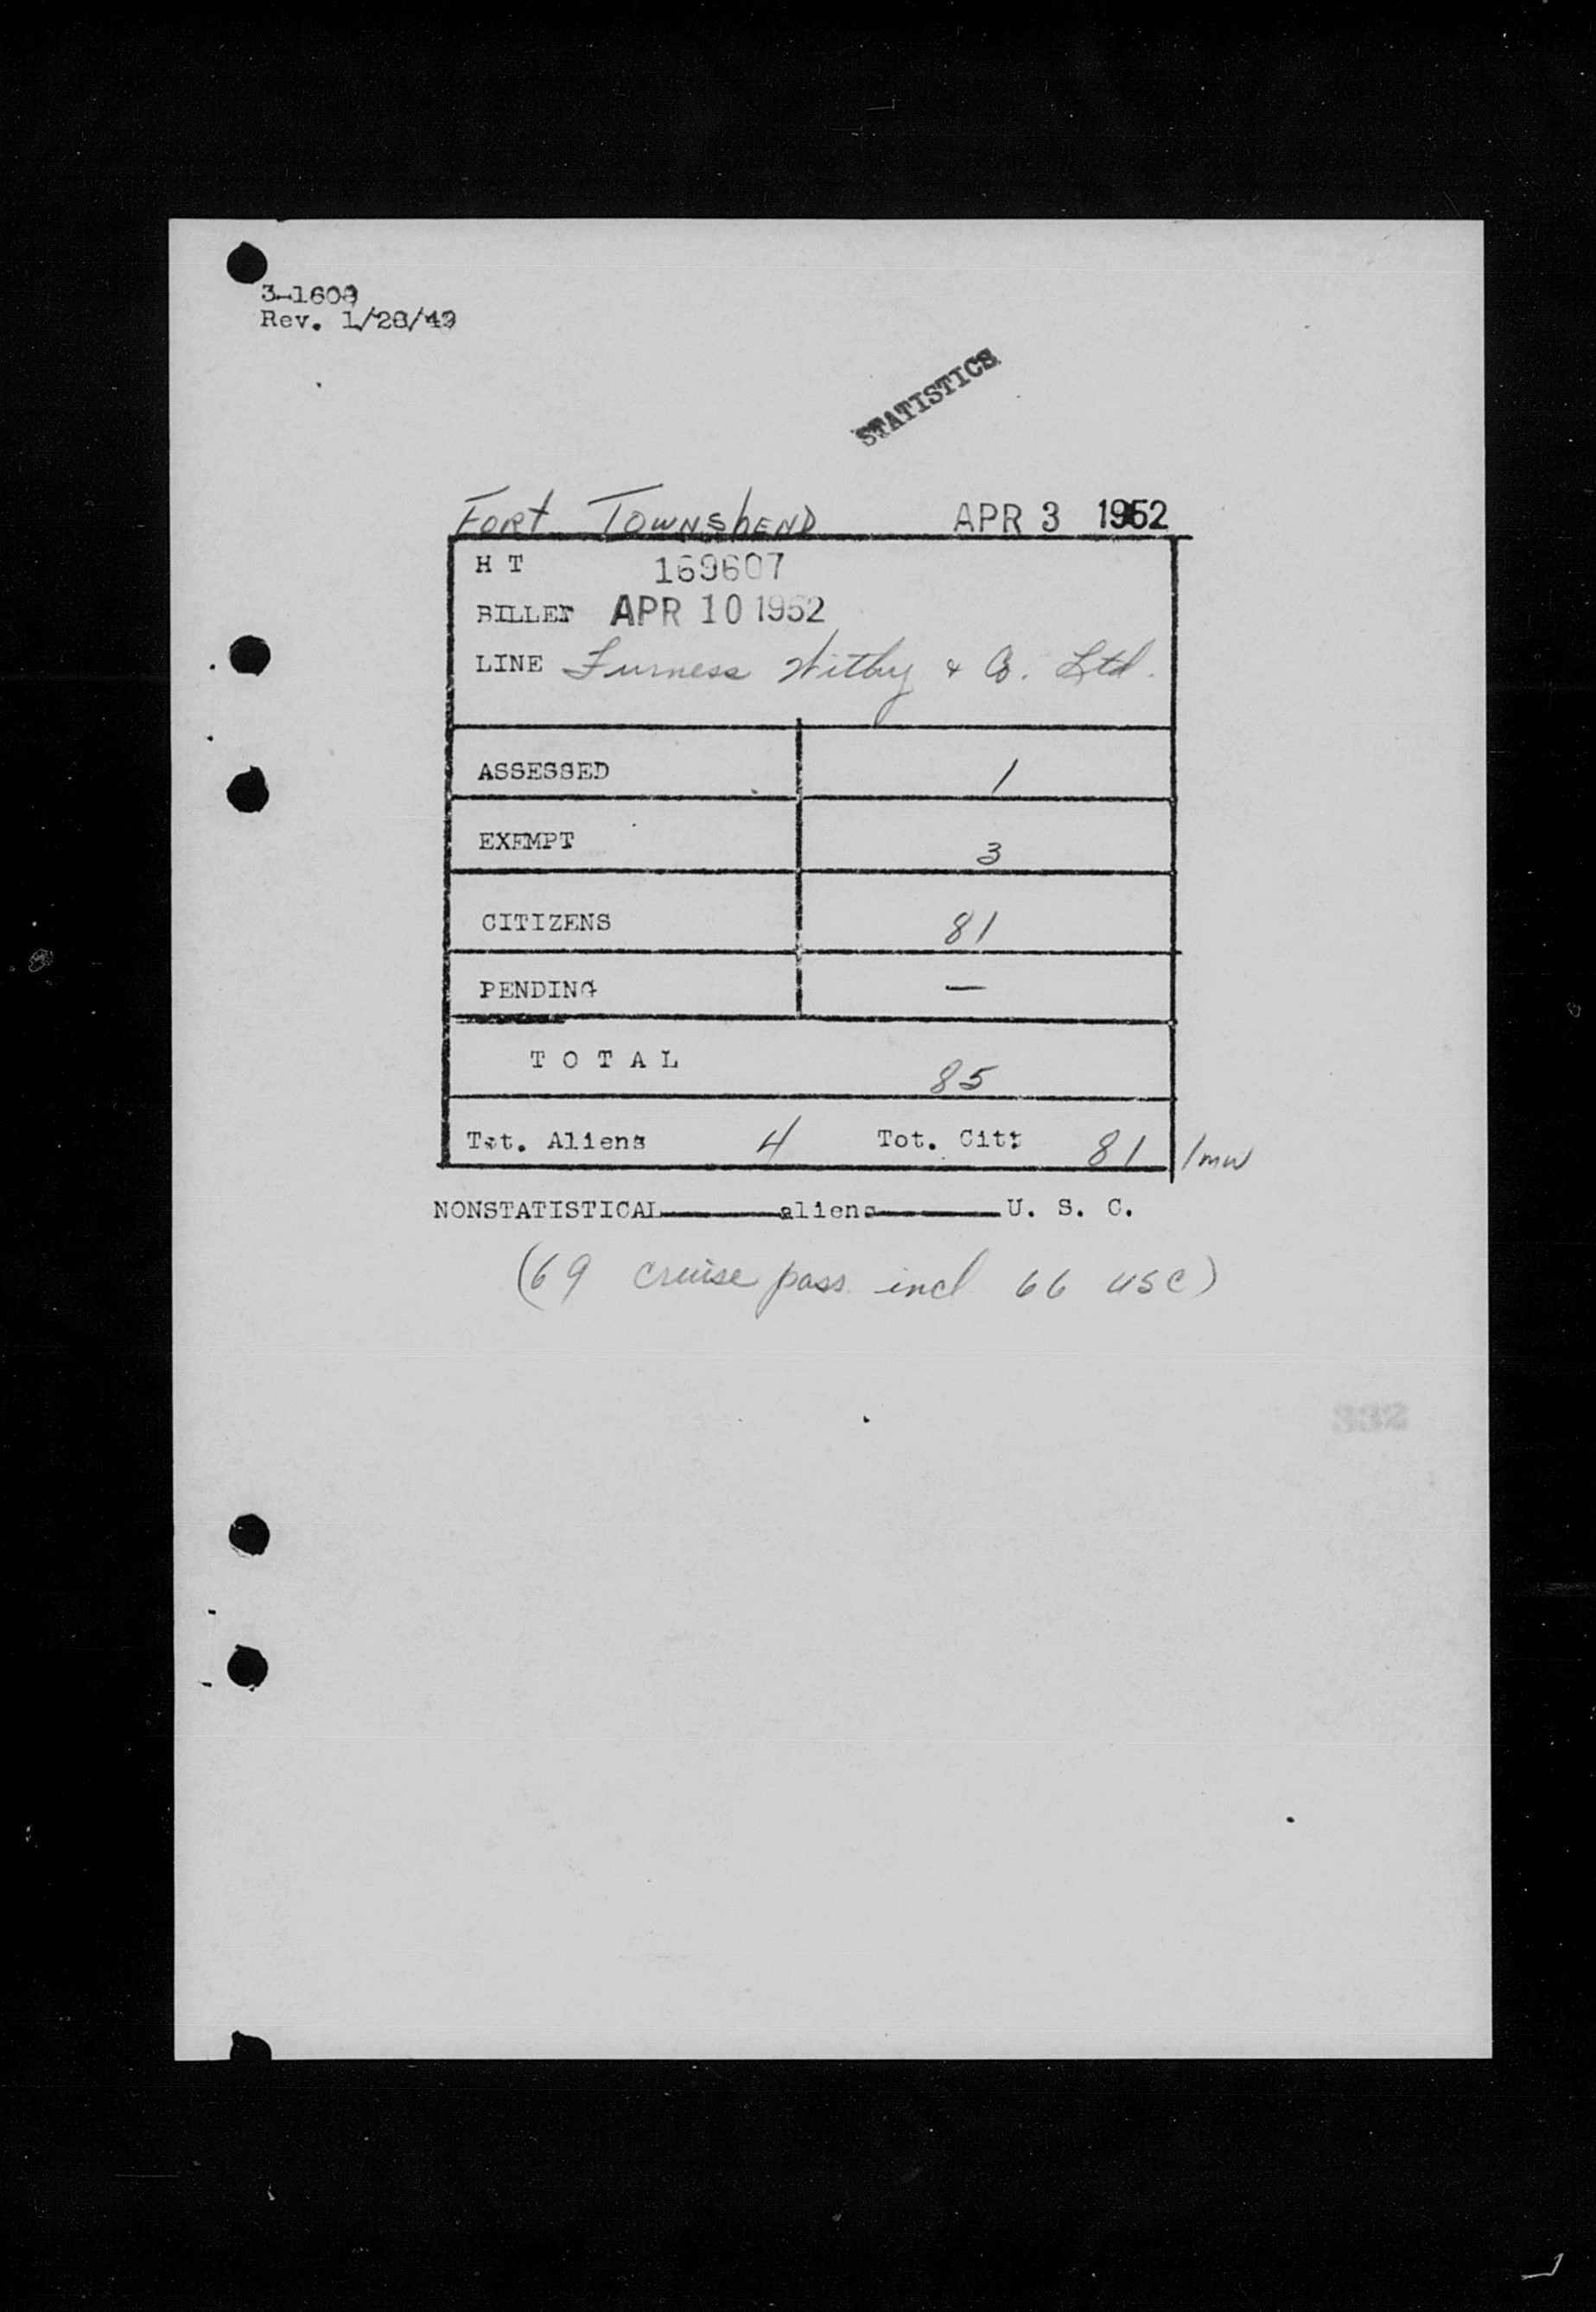 3-1608
Rev. 1/28/49
STATISTICS
FORT TOWNShEND APR 3 1952
H T 169607
BILLET APR 10 1952
LINE Furness Withy & Co. Ltd.
ASSESSED 1
EXEMPT 3
CITIZENS 81
PENDING —
T O T A L 85
Tot. Aliens 4 Tot. Cit: 81 /mw
NONSTATISTICAL aliens U. S. C.
(69 cruise pass incl 66 USC)